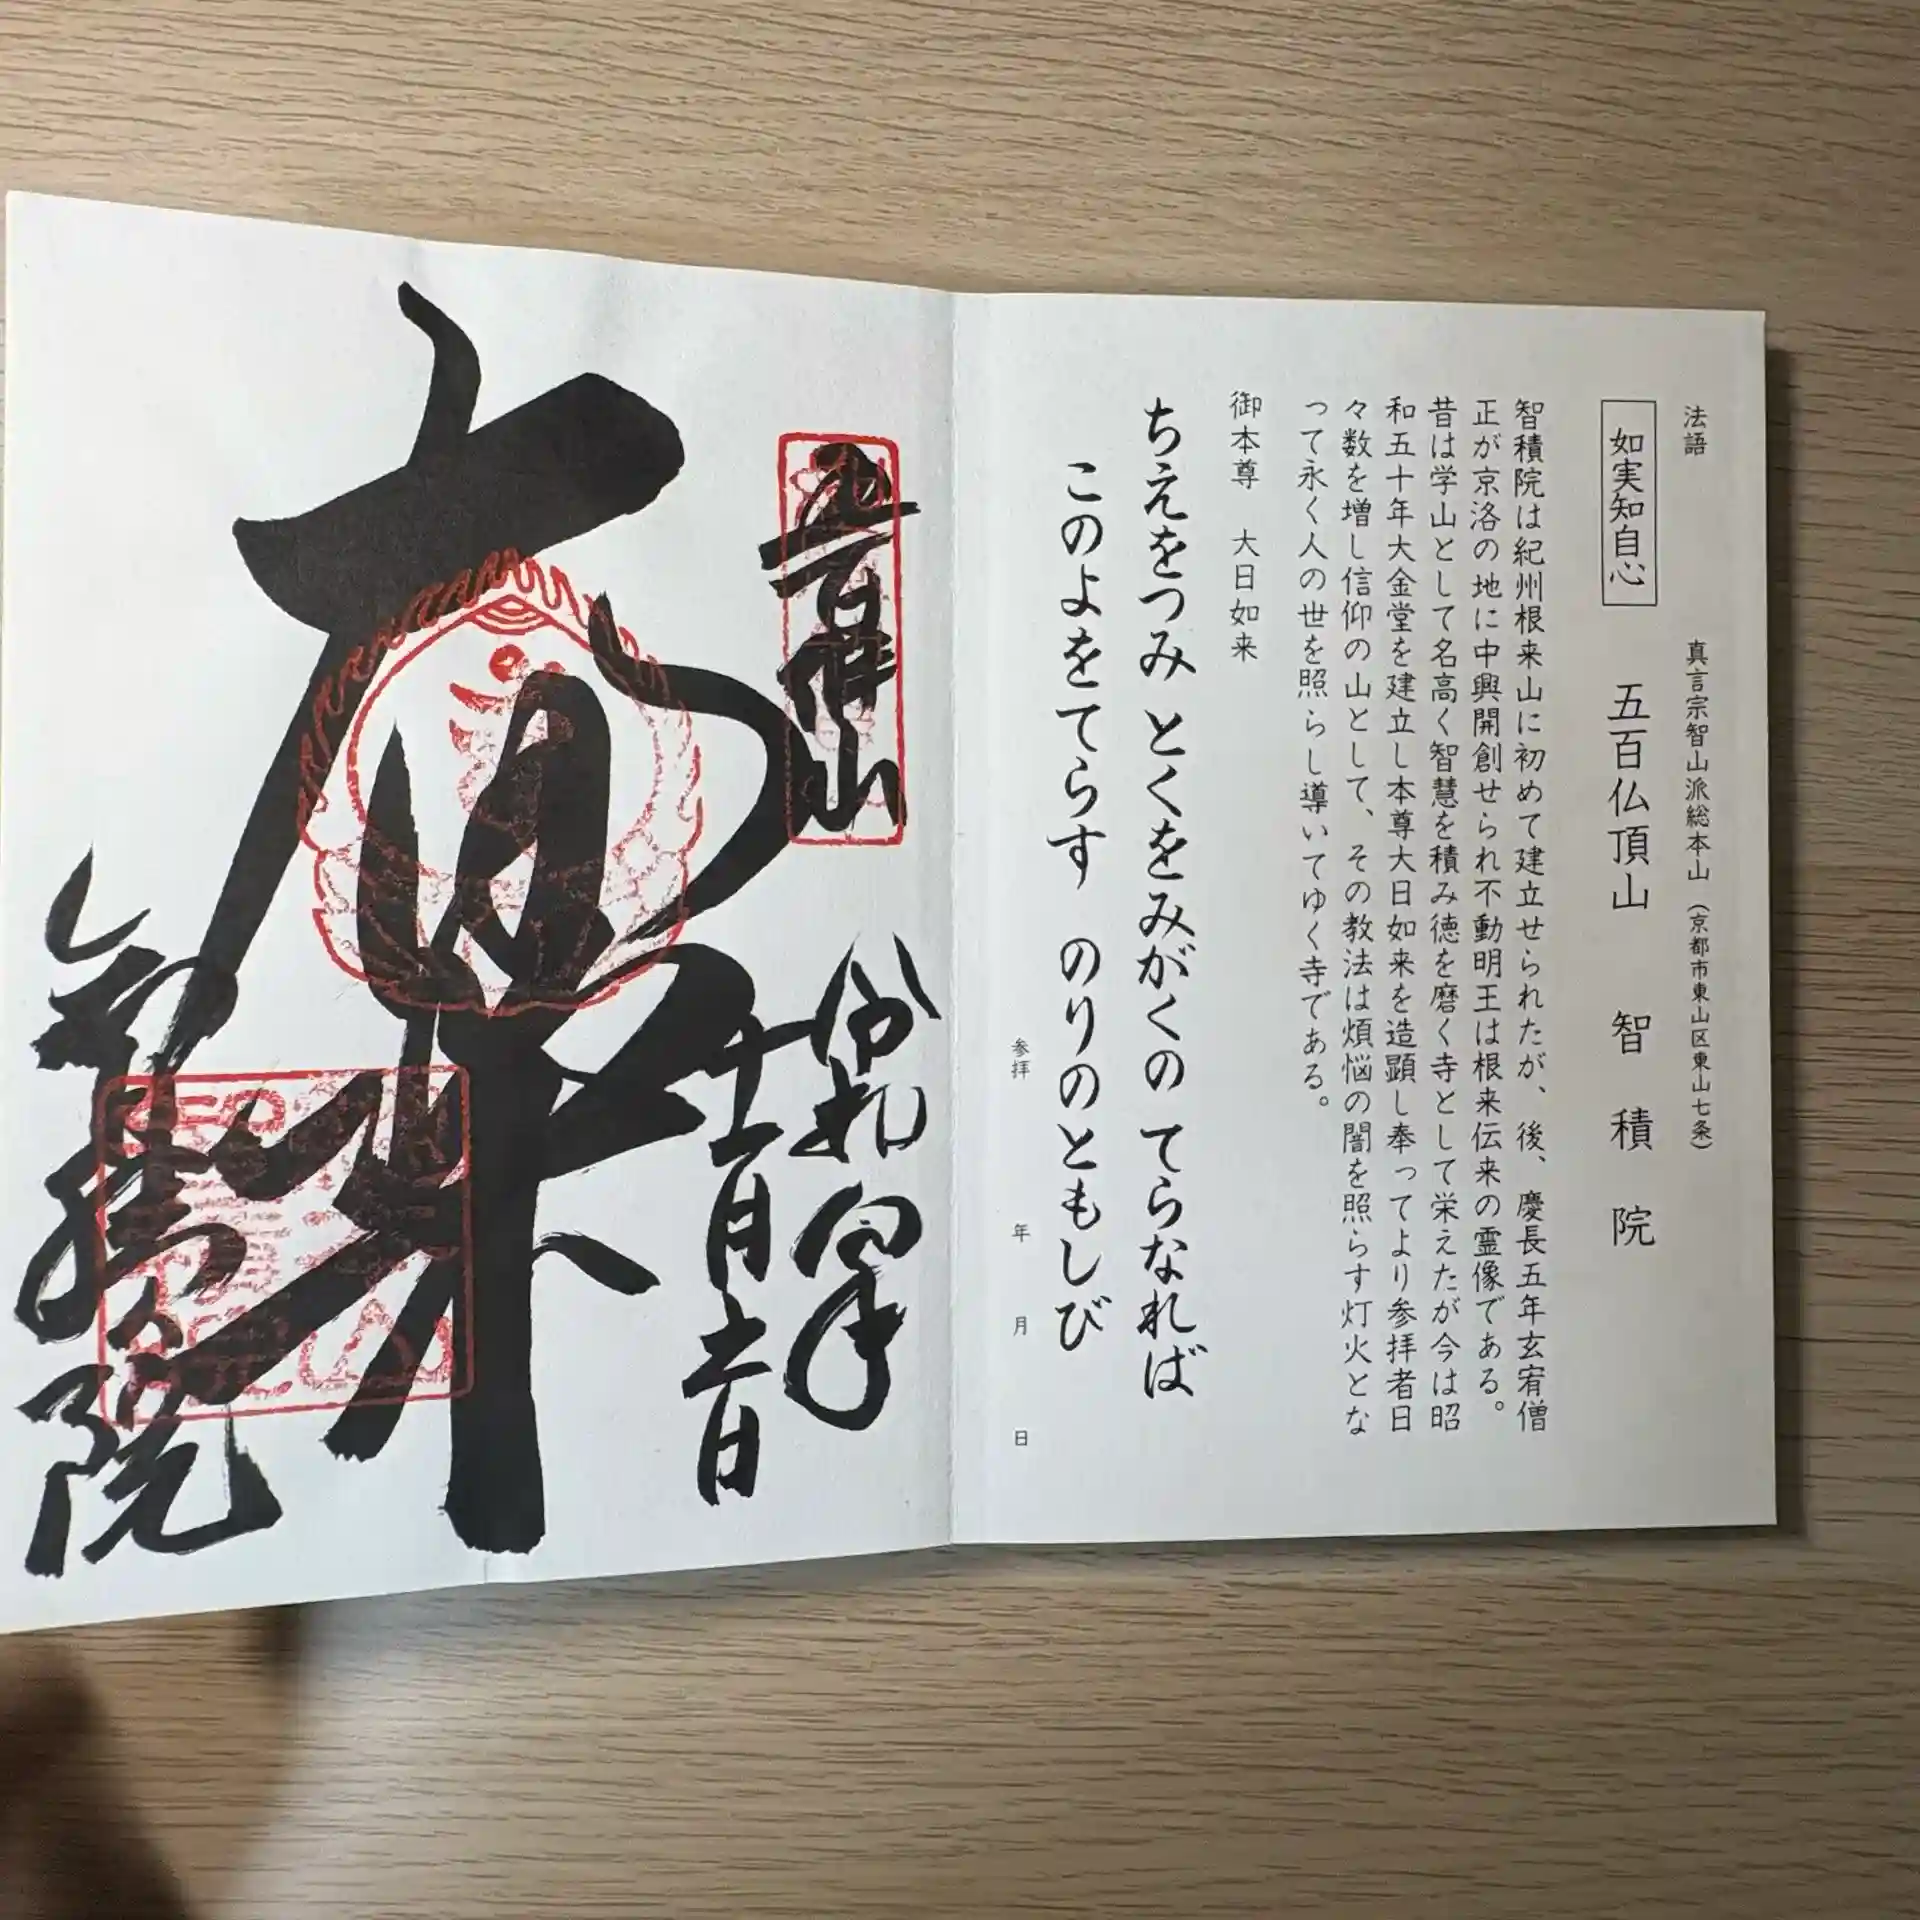 法語　真言宗智山派総本山（京都市東山区東山七条）
如実知自心　五百仏頂山　智積院
智積院は紀州根来山に初めて建立せられたが、後、慶長五年玄宥僧
正が京洛の地に中興開創せられ不動明王は根来伝来の霊像である。
昔は学山として名高く智慧を積み徳を磨く寺として栄えたが今は昭
和五十年大金堂を建立し本尊大日如来を造顕し奉ってより参拝者日
々数を増し信仰の山として、その教法は煩悩の闇を照らす灯火とな
って永く人の世を照らし導いてゆく寺である。
御本尊　大日如来
ちえをつみ とくをみがくの てらなれば
このよをてらす のりのともしび
参拝　年　月　日
十一月
院